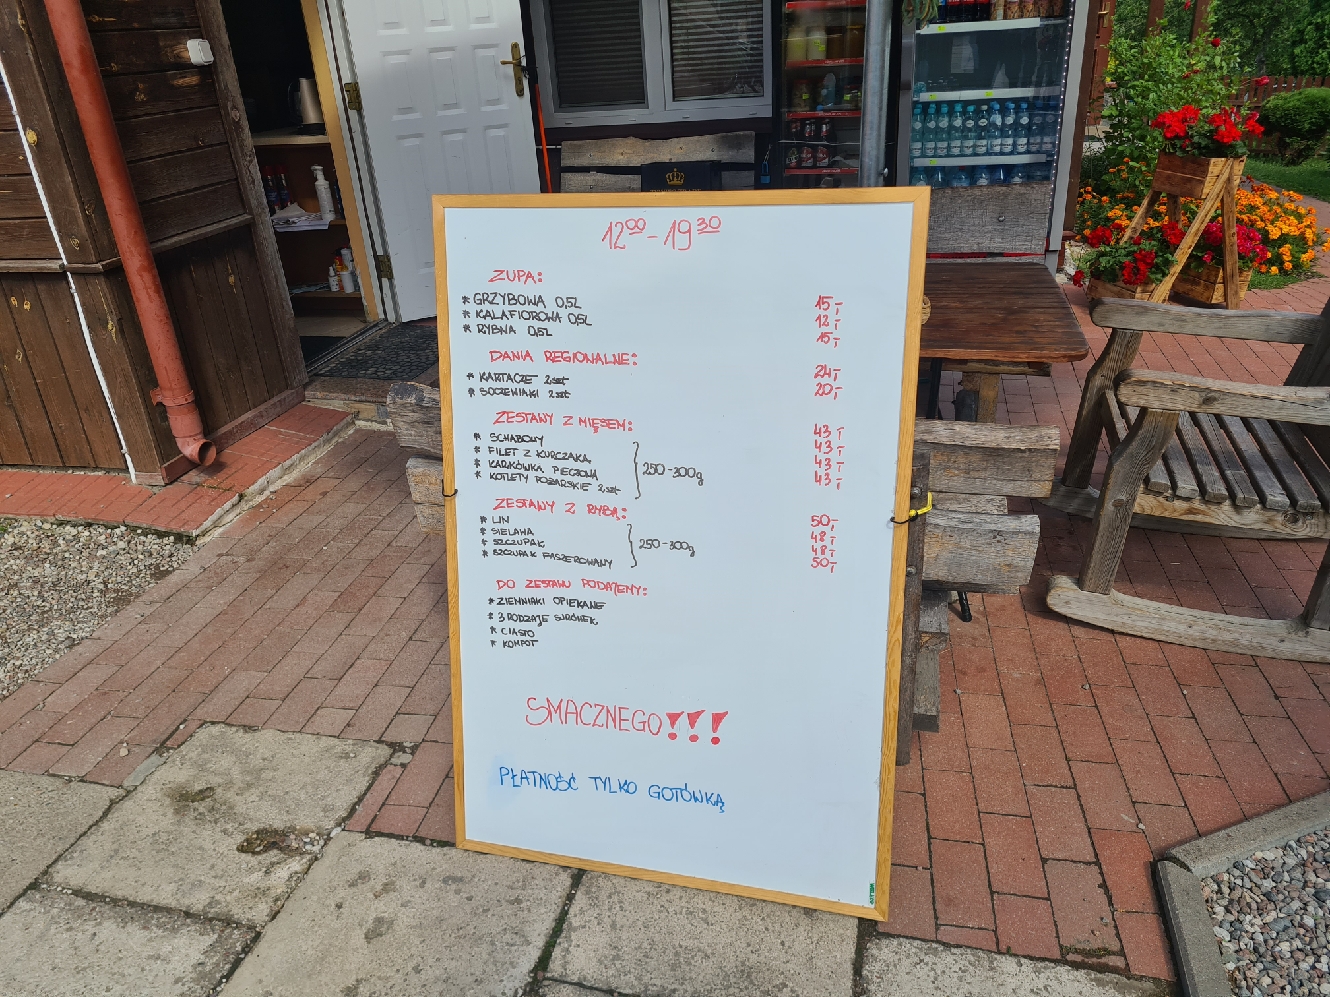 12⁰⁰-19³⁰
ZUPA:
* GRZYBOWA 0,5L 15,-
* KALAFIOROWA 0,5L 12,-
* RYBNA 0,5L 15,-
DANIA REGIONALNE:
* KARTACZE 2szt 24,-
* SOCZEWIAKI 2szt 20,-
ZESTAWY Z MIĘSEM:
* SCHABOWY 43,-
* FILET Z KURCZAKA 43,-
* KARKÓWKA PIECZONA 43,-
* KOTLETY POŻARSKIE 2szt 43,-
250-300g
ZESTAWY Z RYBĄ:
* LIN 50,-
* SIELAWA 48,-
* SZCZUPAK 48,-
* SZCZUPAK FASZEROWANY 50,-
250-300g
DO ZESTAWU PODAJEMY:
* ZIEMNIAKI OPIEKANE
* 3 RODZAJE SURÓWEK
* CIASTO
* KOMPOT
SMACZNEGO!!!
PŁATNOŚĆ TYLKO GOTÓWKĄ